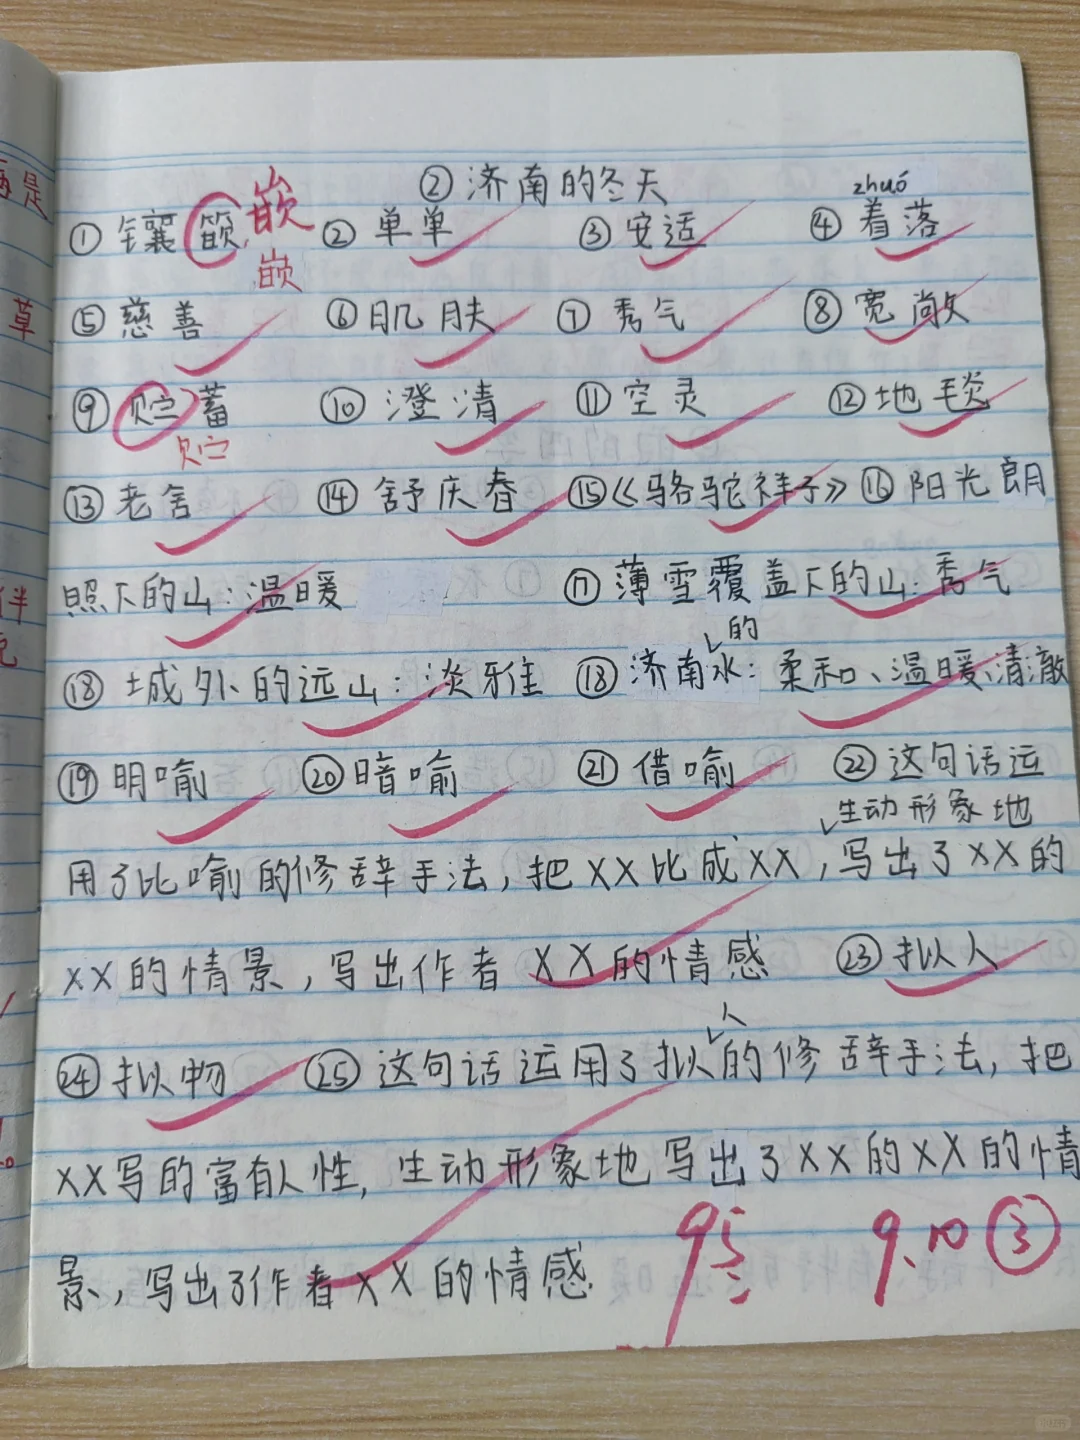 ②济南的冬天
zhuó
①镶 嵌 ②单单 ③安适 ④着落
嵌
⑤慈善 ⑥肌肤 ⑦秀气 ⑧宽敞
⑨贮蓄 ⑩澄清 ⑪空灵 ⑫地毯
贮
⑬老舍 ⑭舒庆春 ⑮《骆驼祥子》 ⑯阳光朗
照下的山:温暖 ⑰薄雪覆盖下的山:秀气
的
⑱城外的远山:淡雅 ⑱济南水:柔和、温暖、清澈
⑲明喻 ⑳暗喻 ㉑借喻 ㉒这句话运
生动形象地
用了比喻的修辞手法,把XX比成XX,写出了XX的
XX的情景,写出作者XX的情感 ㉓拟人
人
㉔拟物 ㉕这句话运用了拟的修辞手法,把
XX写的富有人性,生动形象地写出了XX的XX的情
景,写出了作者XX的情感.
95 9.10 ③
是
草
伴